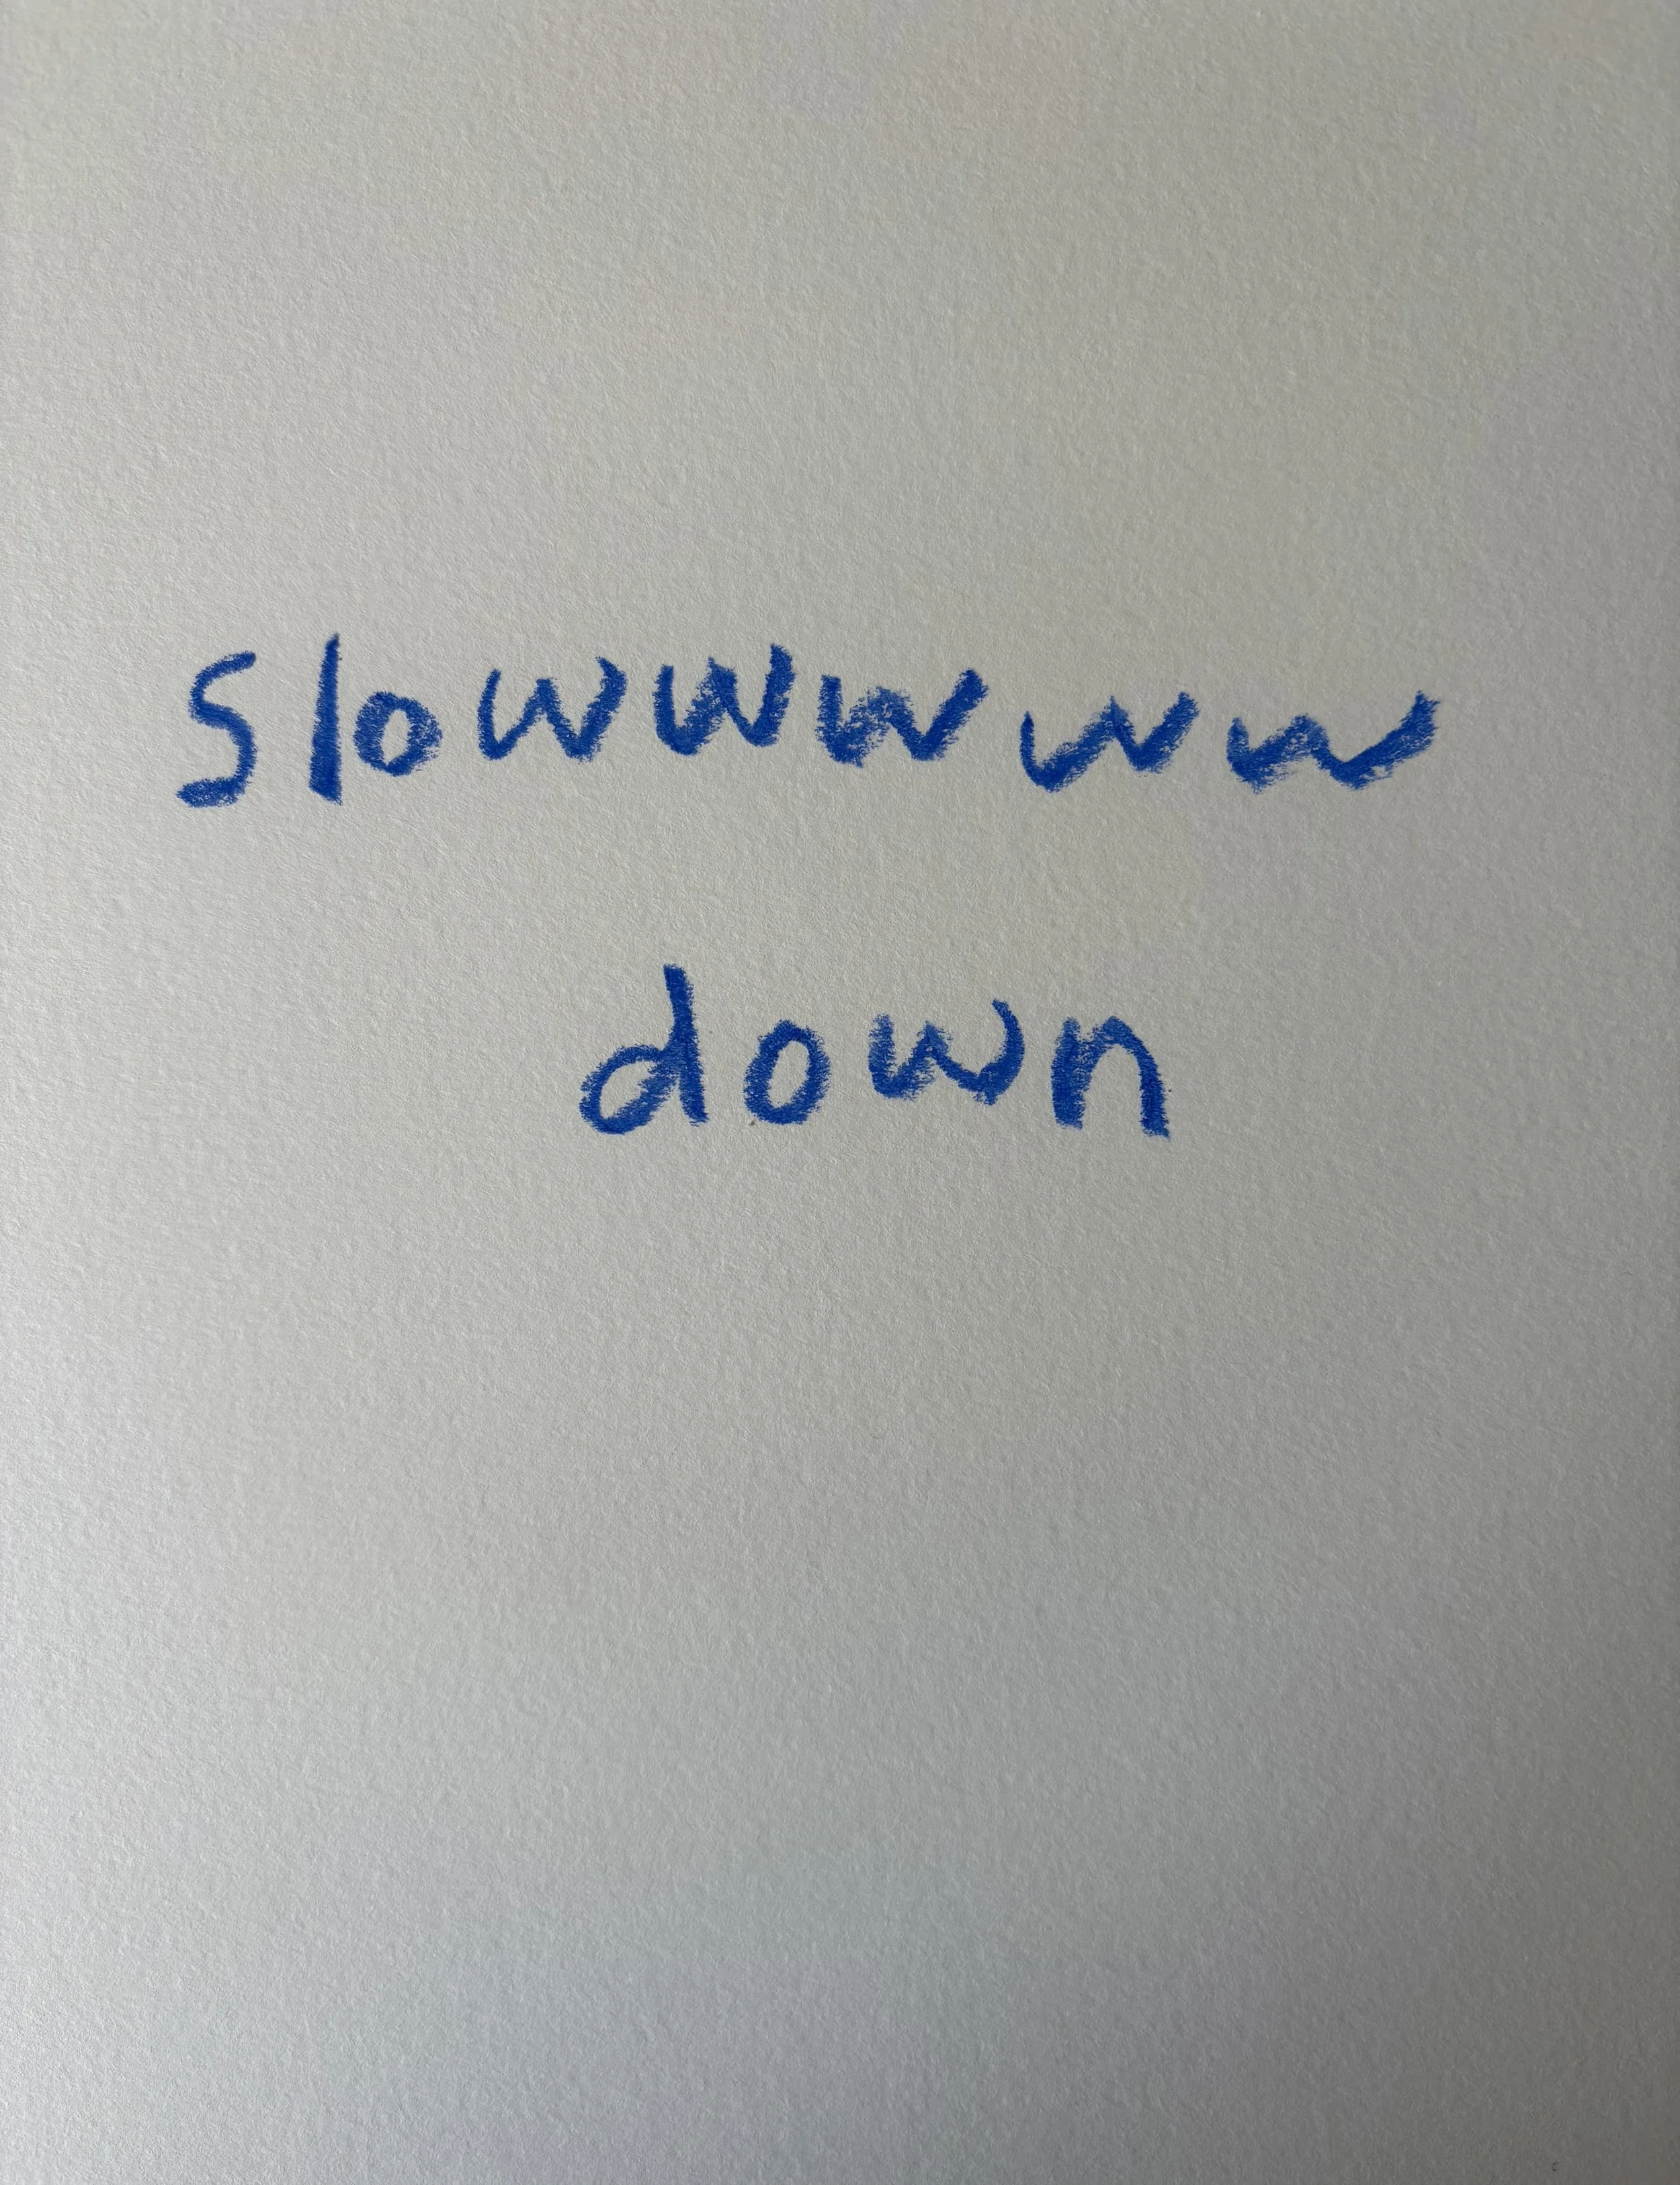 slowwwww
down